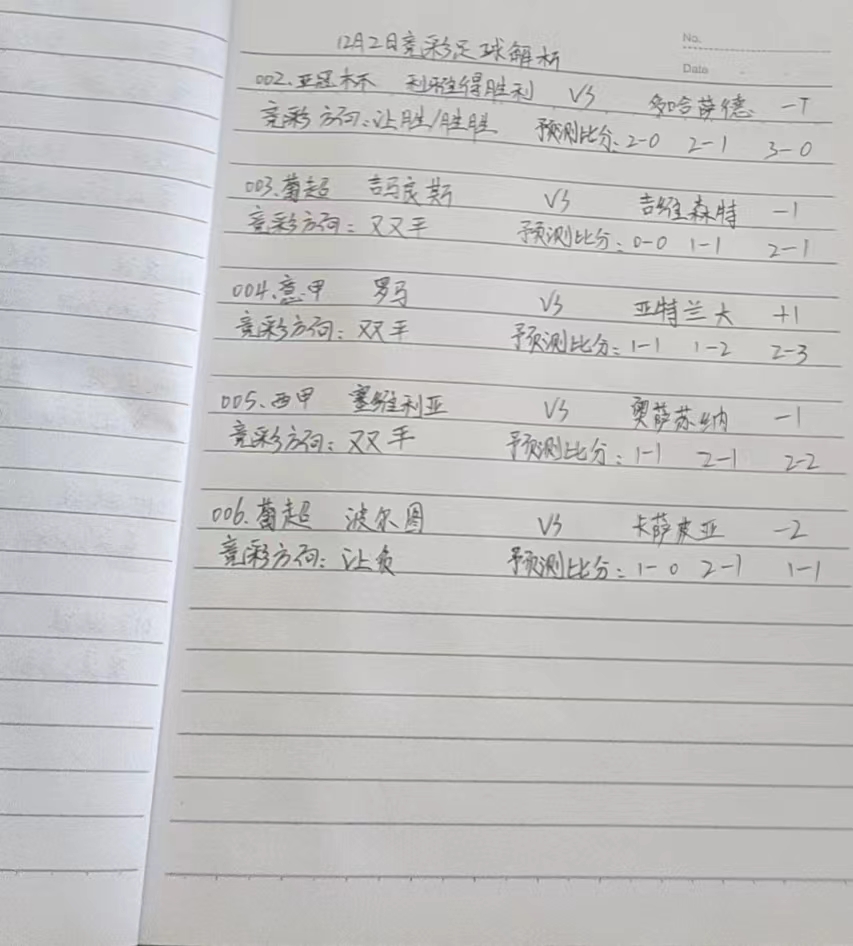 No.
12月2日竞彩足球解析
Date
002.亚冠杯 利雅得胜利 VS 多哈萨德 -1
竞彩方向:让胜/胜胜 预测比分:2-0 2-1 3-0
003.葡超 吉马良斯 VS 吉维森特 -1
竞彩方向:双平 预测比分:0-0 1-1 2-1
004.意甲 罗马 VS 亚特兰大 +1
竞彩方向:双平 预测比分:1-1 1-2 2-3
005.西甲 塞维利亚 VS 奥萨苏纳 -1
竞彩方向:双平 预测比分:1-1 2-1 2-2
006.葡超 波尔图 VS 卡萨皮亚 -2
竞彩方向:让负 预测比分:1-0 2-1 1-1